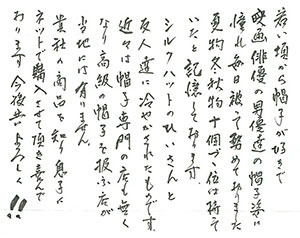 若い頃から帽子が好きで
映画俳優の男優達の帽子姿に
憧れ毎日被って努めておりました
夏物冬秋物十個づつ位は持て
いたと記憶しております
シルクハットのひいさんと
友人達に冷やかされたものです。
近々は帽子専門の店も無く
なり高級の帽子を扱ふ店が
当地には有りません。
貴社の商品を知り息子に
ネットで購入させて頂き喜んで
おります 今後共によろしく!!